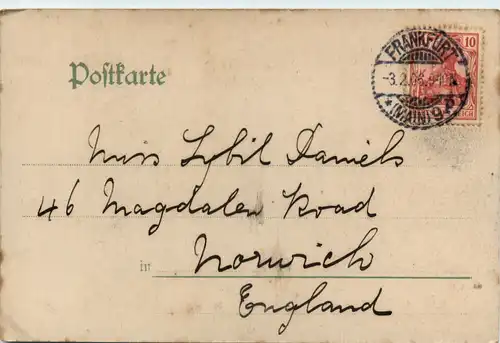 Postkarte
FRANKFURT
(MAIN) 9
10
REICH
Miss Sybil Daniels
46 Magdalen Road
in Norwich
England